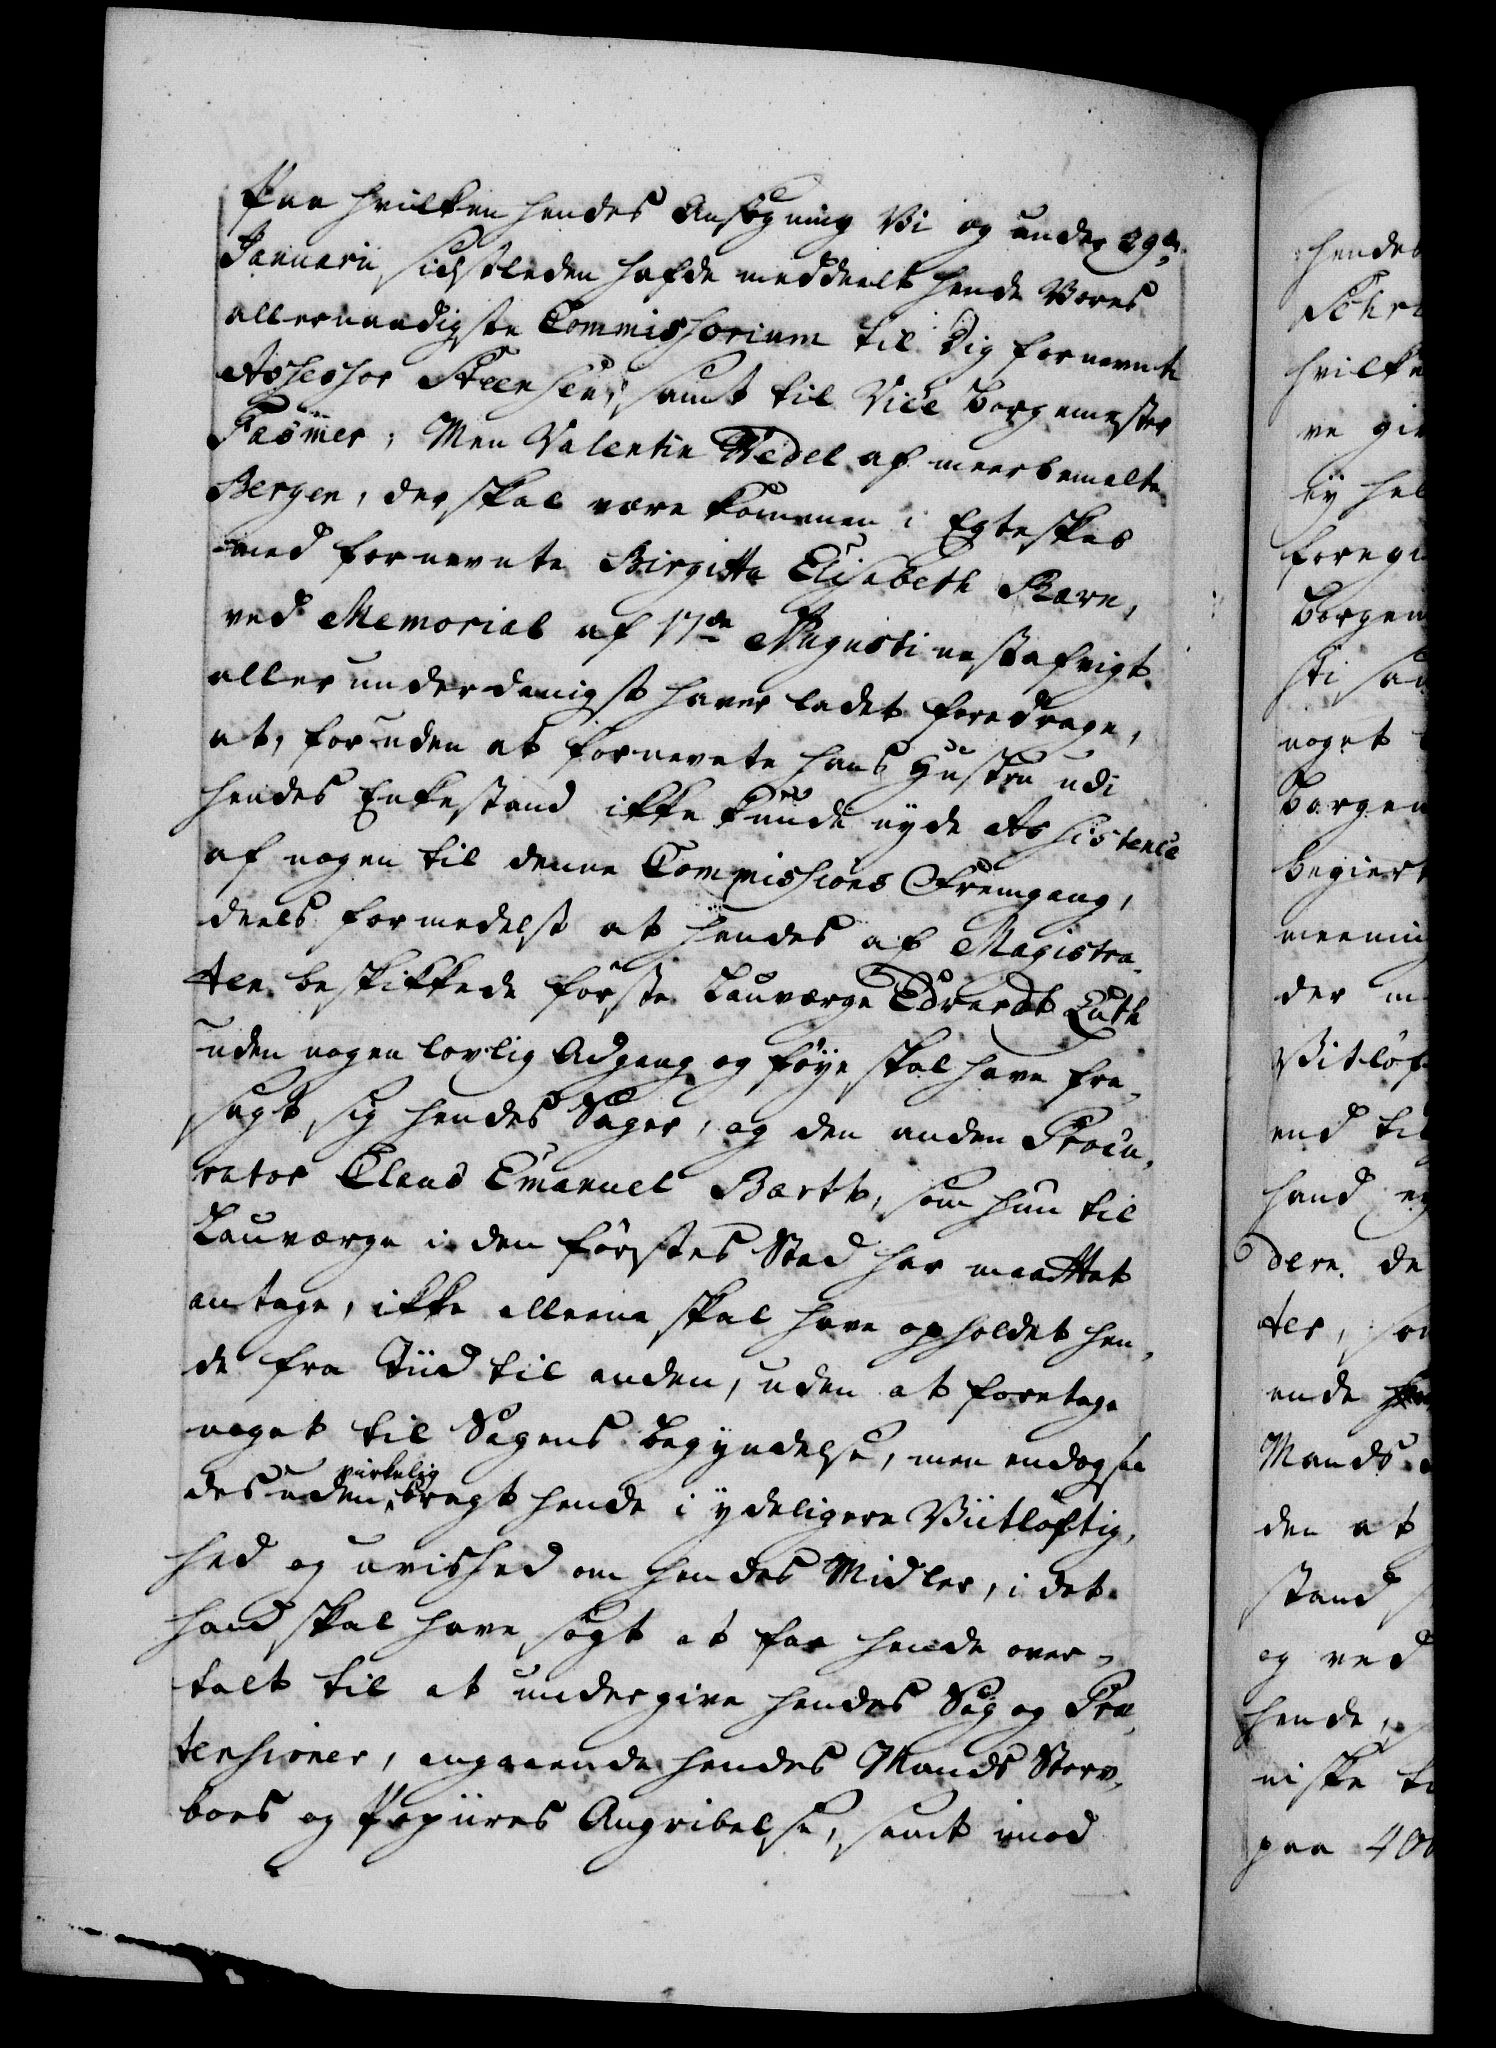 Paa hvilken hendes Ansøgning Vi og under 29de
Januarii sidstleden hafde meddeelt hende Vores
allernaadigste Commissorium til Dig fornevnte
Assessor Steensen, samt til Vice Borgemester
Fasmer; Men Valentin Wedel af meerbemelte
Bergen, der skal være kommen i Egteskab
med fornevnte Birgitta Elisabeth
ved Memorial af 17de Augusti nestafvigt
allerunderdanigst haver ladet foredrage,
at, foruden at fornevnte hans Hustru udi
hendes Enkestand ikke kunde nyde Assistence
af nogen til denne Commissions Fremgang,
deels formedelst at hendes af Magistra-
ten beskikkede første Lauværge Edvardt
uden nogen lovlig Adgang og føye skal have fra-
sagt sig hendes Sager, og den anden Procu-
rator Claus Emanuel Barth, som hun til
Lauværge i den førstes Sted har maattet
antage, ikke alleene skal have opholdet hen-
de fra Tiid til anden, uden at foretage
noget til Sagens Begyndelse, men endogsaa
desuden virkelig bragt hende i ydeligere Viitløftig-
hed og uvished om hendes Midler, i det
hand skal have søgt at faa hende over-
talt til at undergive hendes Sag og Præ-
tensioner, angaaende hendes Mands Sterv-
boes og Papiires Angribelse, samt imod
hendes
hvilke
ve gi
ey hel
foregi
Borgem
sti sa
noget
Borgem
begiert
meening
der
Vitløf
end til
hand
dere. de
ter, so
ende
Mands
den at
stand
og ved
hende,
niske
paa 400